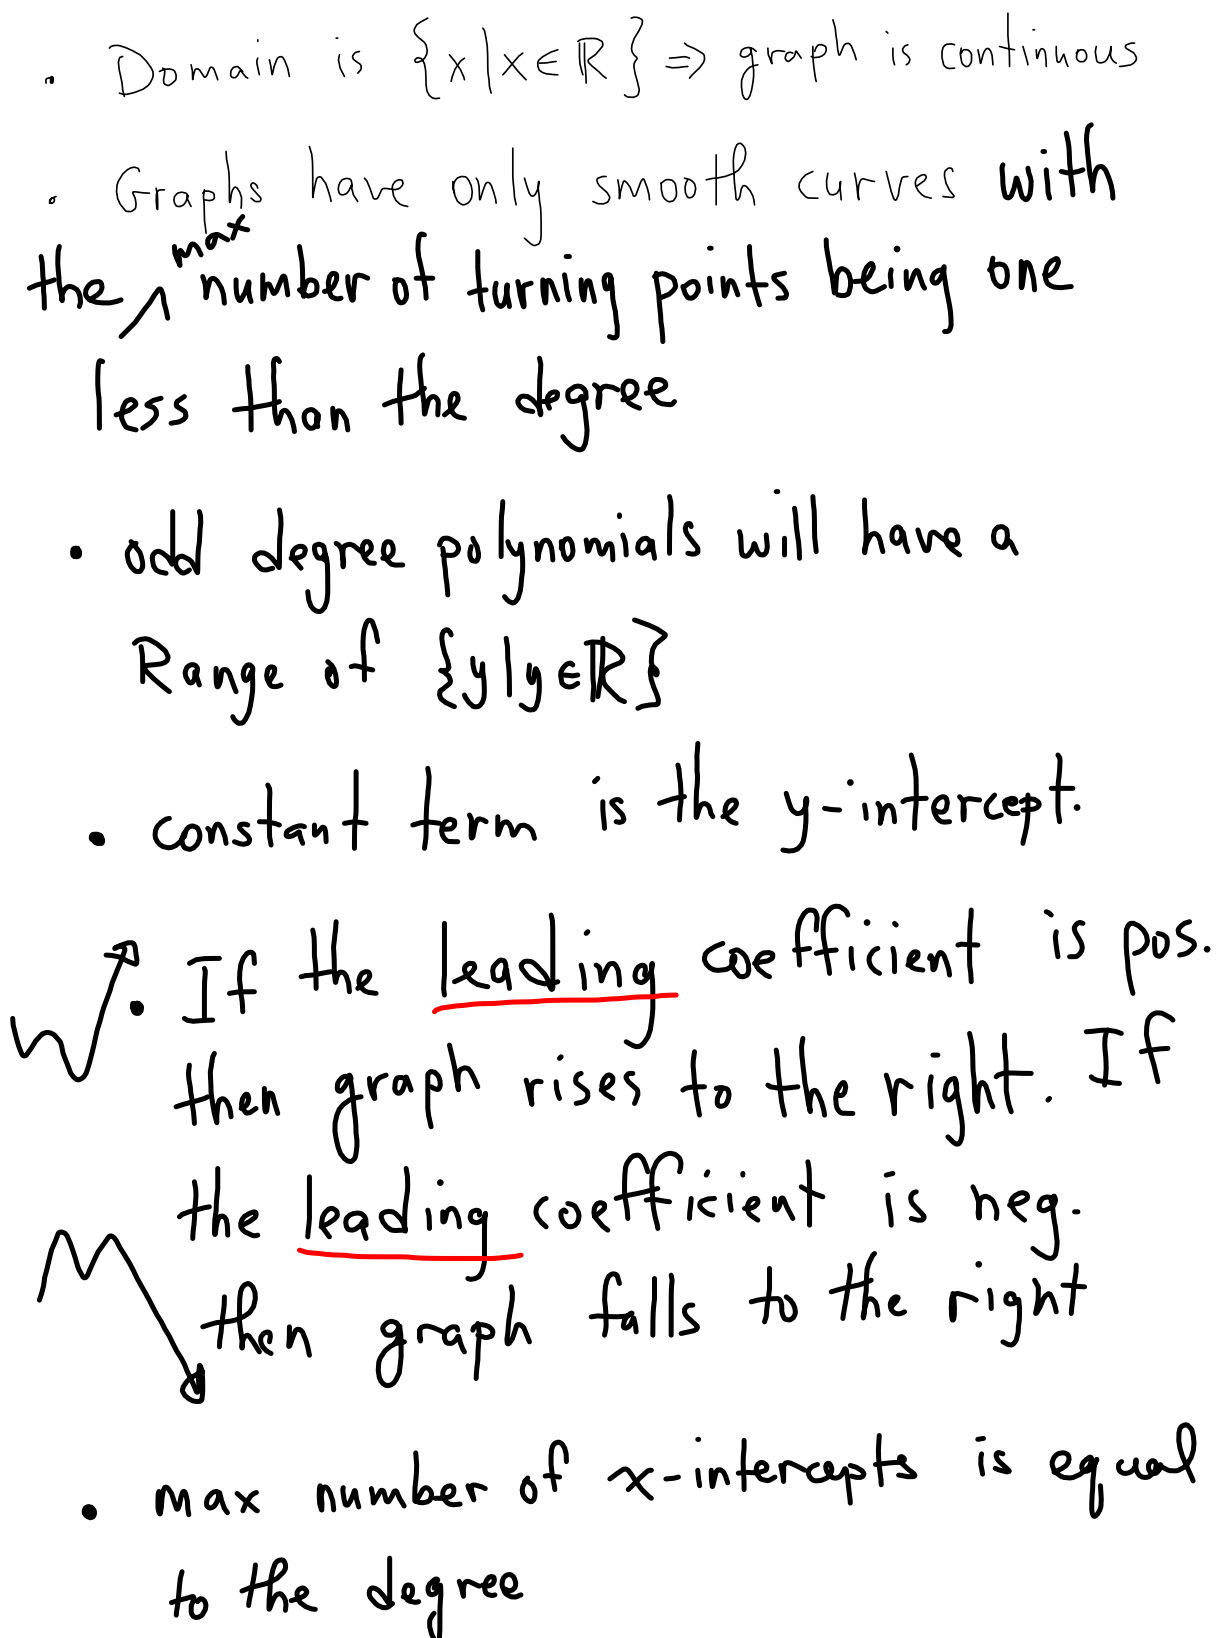 • Domain is {x|x∈ℝ} ⇒ graph is continuous
• Graphs have only smooth curves with
max
the ∧ number of turning points being one
less than the degree
• odd degree polynomials will have a
Range of {y|y∈ℝ}
• constant term is the y-intercept.
• If the leading coefficient is pos.
then graph rises to the right. If
the leading coefficient is neg.
then graph falls to the right
• max number of x-intercepts is equal
to the degree